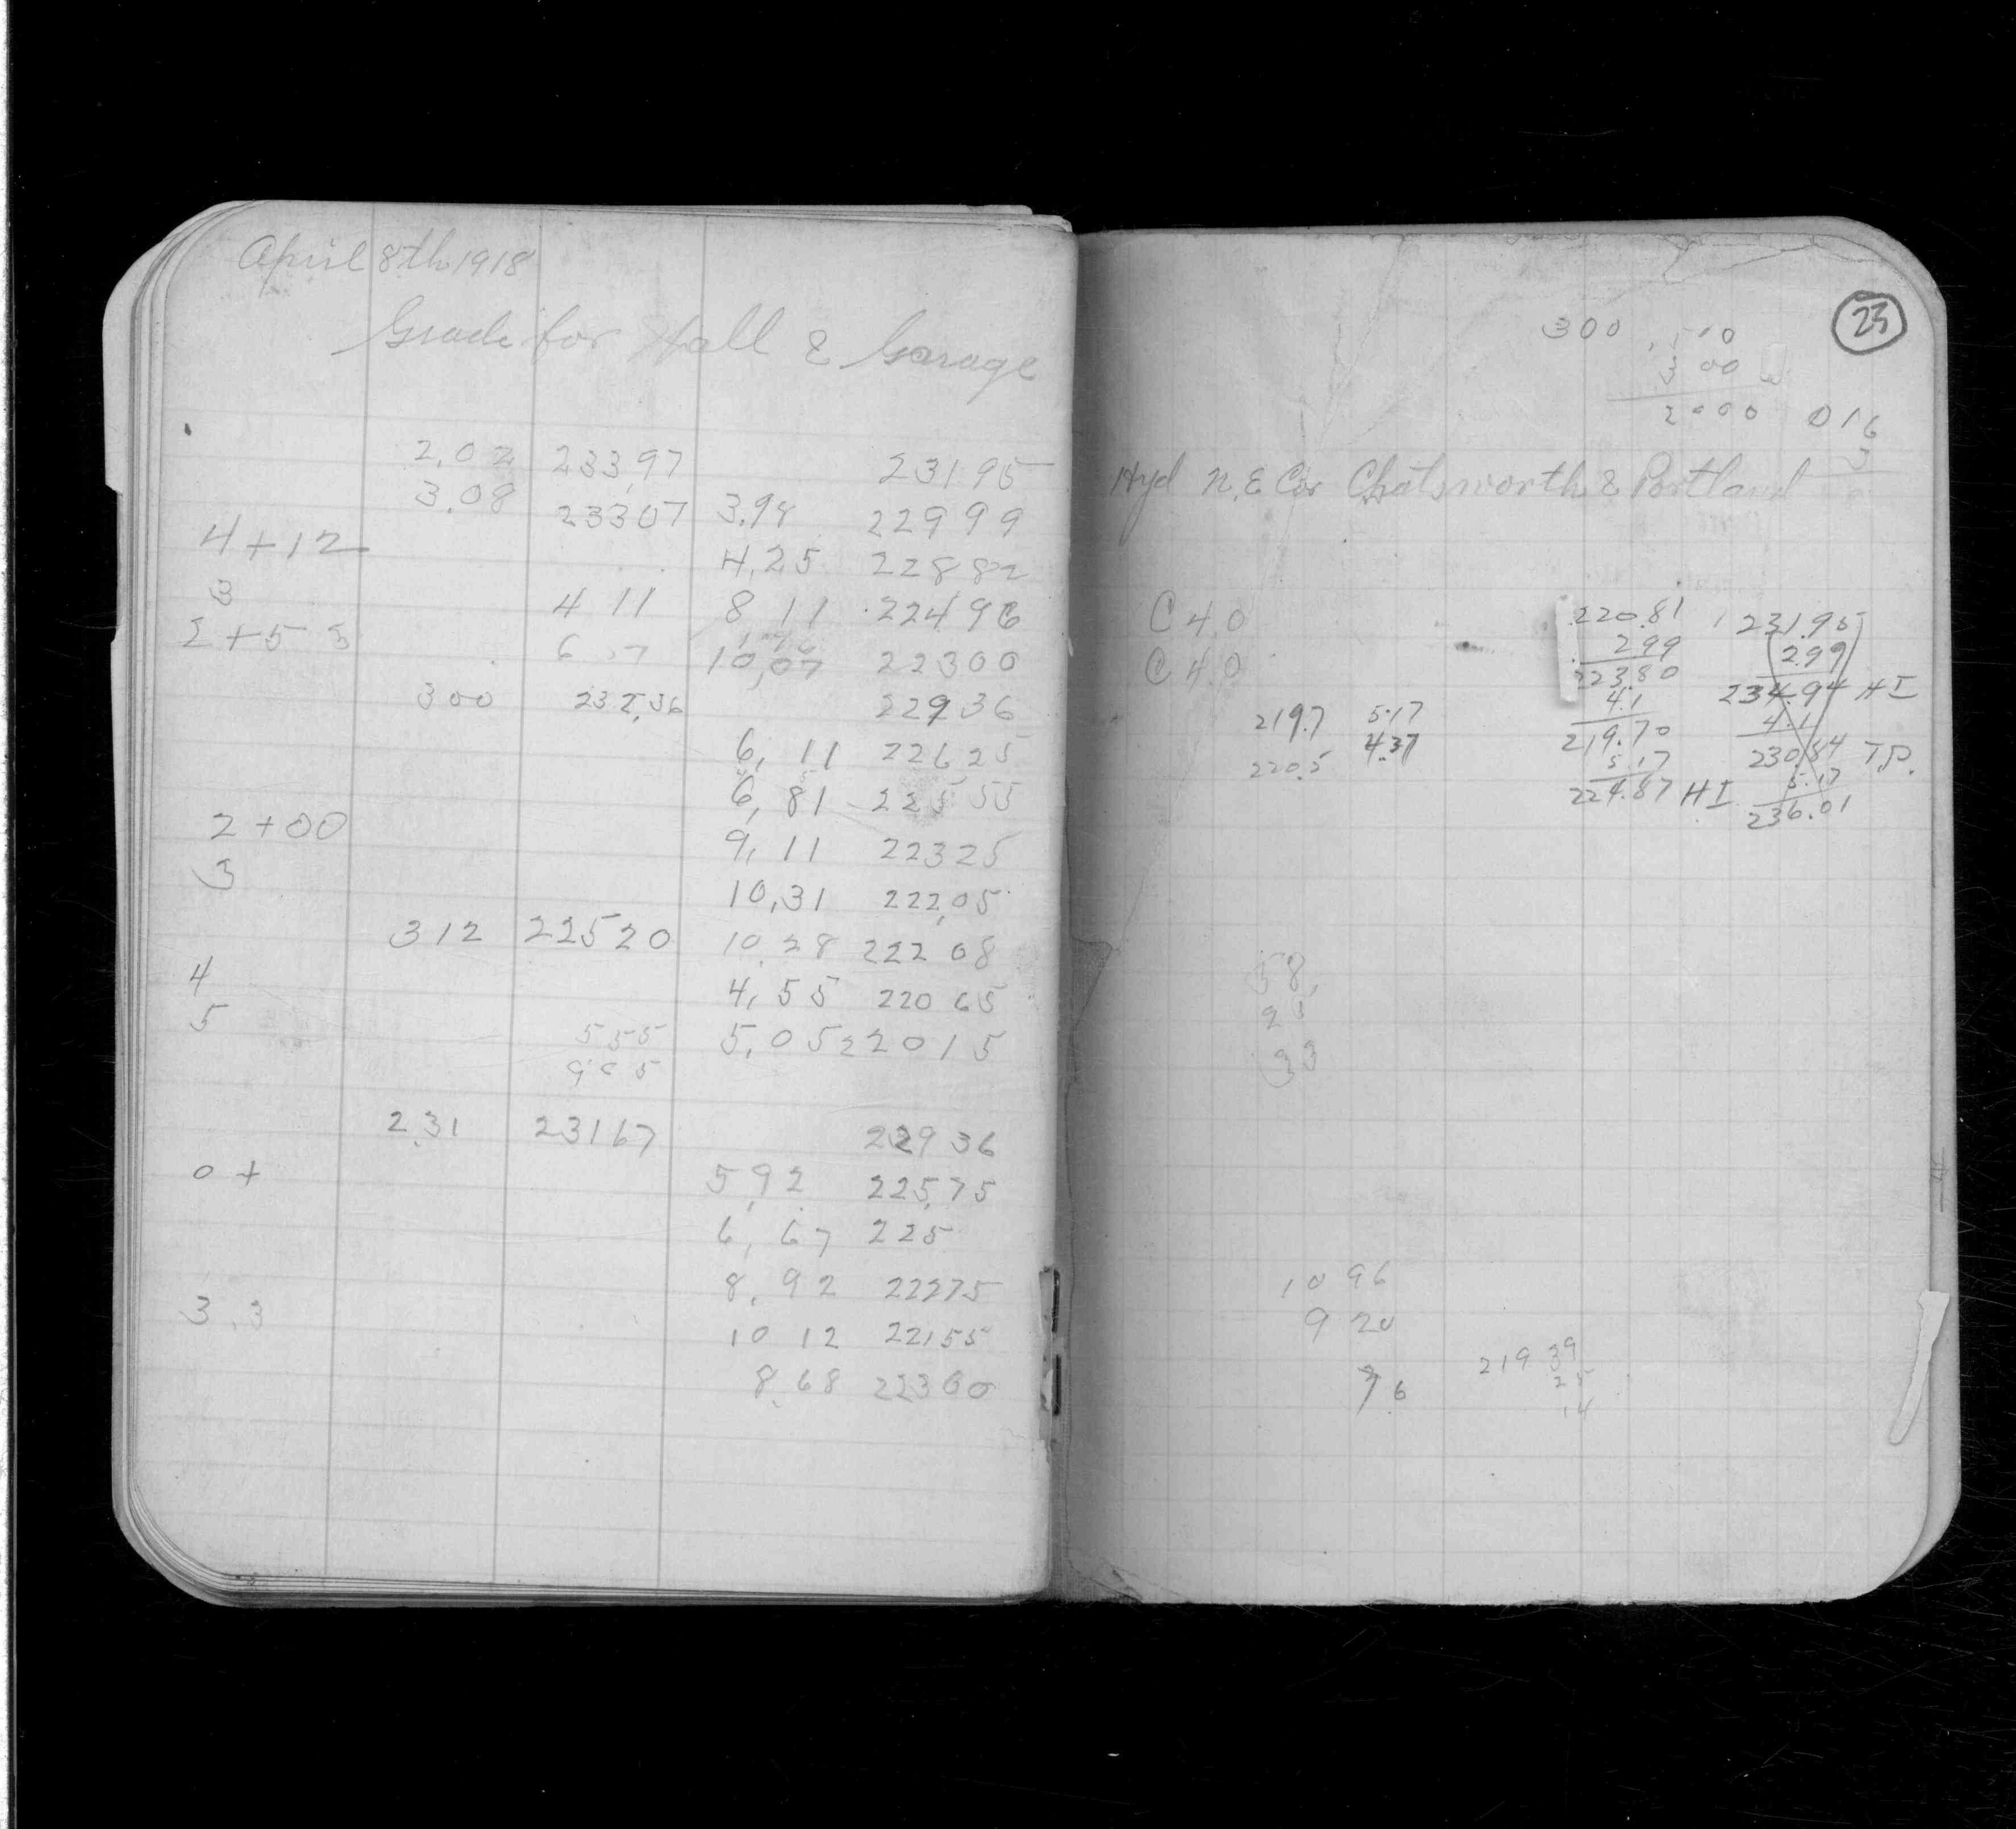 April 8th 1918
Grade for Wall & Garage
2.02 233.97 231 95
3.08 233 07 3.98 229 99
4+12 4.25 228 82
3 4 11 8 11 224 96
2+53 6 7 10.07 223 00
3 00 232.36 229 36
6.11 226 25
6.81 225 55
2+00 9.11 223 25
3 10.31 222.05
3 12 225 20 10.28 222 08
4 4.55 220 65
5 5.05 220 15
5 55
9 5
2.31 231 67 229 36
0+ 5.92 225.75
6.67 225
8.92 222 75
3.3 10 12 221 55
8.68 223 00
23
300 10
3 00
2000 016
3
Hyd N.E Cor Chatsworth & Portland
C 4.0 220.81 231.95
C 4.0 2 99 2.99
223.80 234.94 HI
219.7 5.17 4.1 4.1
220.5 4.37 219.70 230.84 T.P.
5.17 5.17
224.87 HI 236.01
58.
33
10 96
9 20
76
219 39
25
14